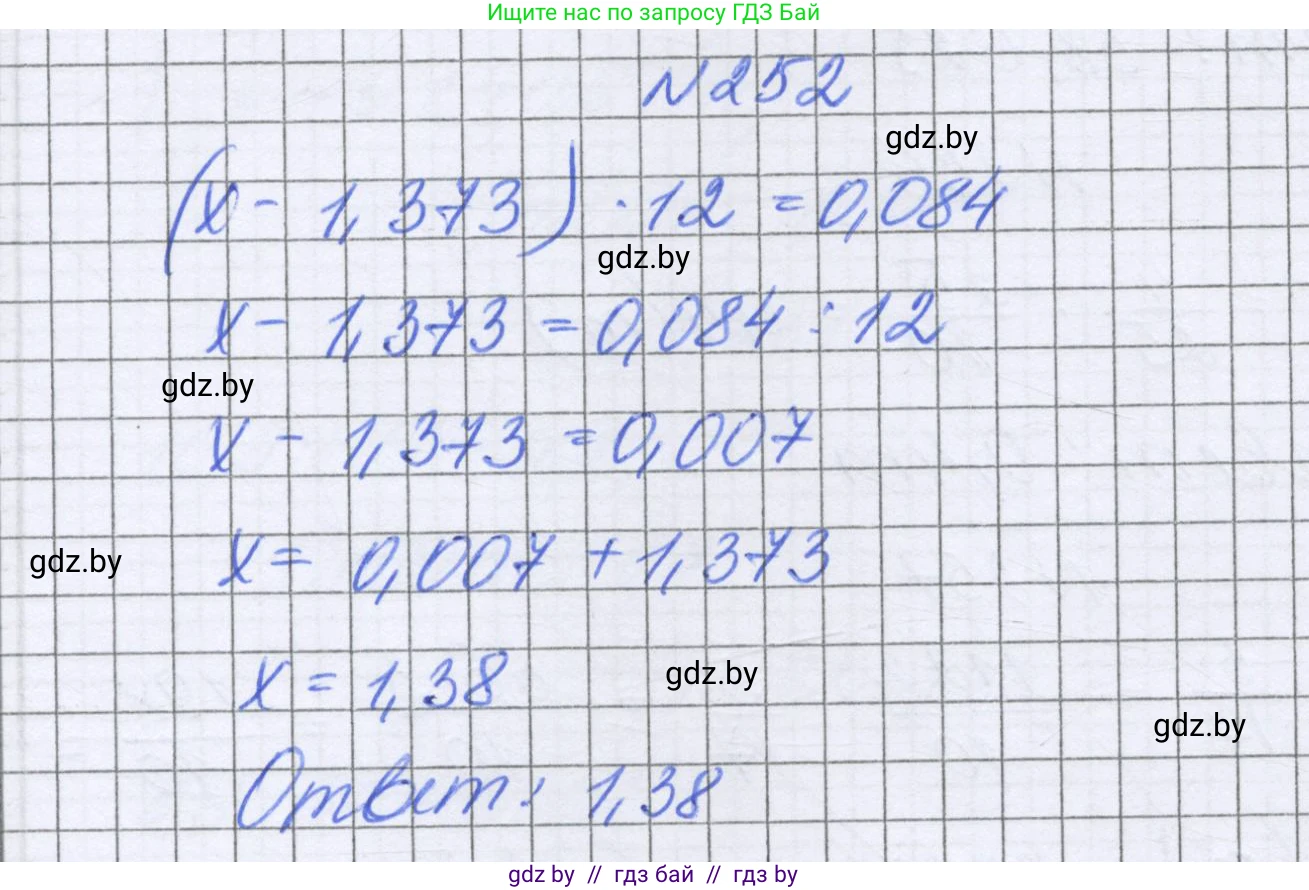 Ищите нас по запросу ГДЗ Бай
N252
gdz.by
(x - 1,373) · 12 = 0,084
gdz.by
x - 1,373 = 0,084 : 12
gdz.by
x - 1,373 = 0,007
gdz.by
x = 0,007 + 1,373
x = 1,38
gdz.by
gdz.by
Ответ: 1,38
gdz by // гдз бай // гдз by